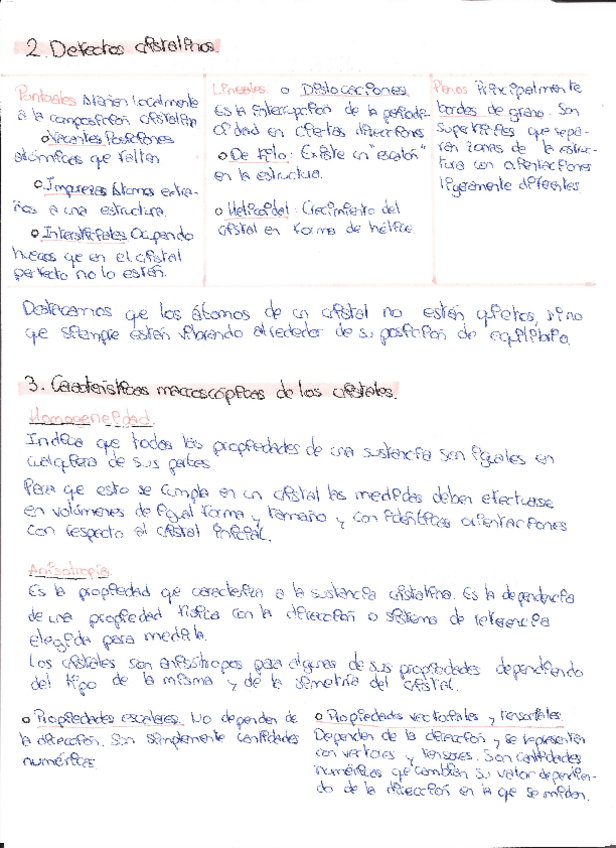 2. Defectos cristalinos.
Puntuales Atañen localmente
a la composición cristalina
o Vacantes Posiciones
atómicas que faltan
o Impurezas Átomos extra-
ños a una estructura.
o Intersticiales Ocupando
huecos que en el cristal
perfecto no lo están.
Lineales o Dislocaciones
Es la interrupción de la periodi-
cidad en ciertas direcciones
o De filo: Existe un "escalón"
en la estructura.
o Helicoidal: Crecimiento del
cristal en forma de hélice
Planos Principalmente
bordes de grano. Son
superficies que sepa-
ran zonas de la estruc-
tura con orientaciones
ligeramente diferentes
Destacamos que los átomos de un cristal no están quietos, sino
que siempre están vibrando alrededor de su posición de equilibrio.
3. Características macroscópicas de los cristales.
Homogeneidad.
Indica que todas las propiedades de una sustancia son iguales en
cualquiera de sus partes
Para que esto se cumpla en un cristal las medidas deben efectuarse
en volúmenes de igual forma y tamaño y con idénticas orientaciones
con respecto al cristal inicial.
Anisotropía
Es la propiedad que caracteriza a la sustancia cristalina. Es la dependencia
de una propiedad física con la dirección o sistema de referencia
elegida para medirla.
Los cristales son anisótropos para algunas de sus propiedades dependiendo
del tipo de la misma y de la simetría del cristal.
o Propiedades escalares. No dependen de
la dirección. Son simplemente cantidades
numéricas
o Propiedades vectoriales y tensoriales
Dependen de la dirección y se representan
con vectores y tensores. Son cantidades
numéricas que cambian su valor dependien-
do de la dirección en la que se miden.